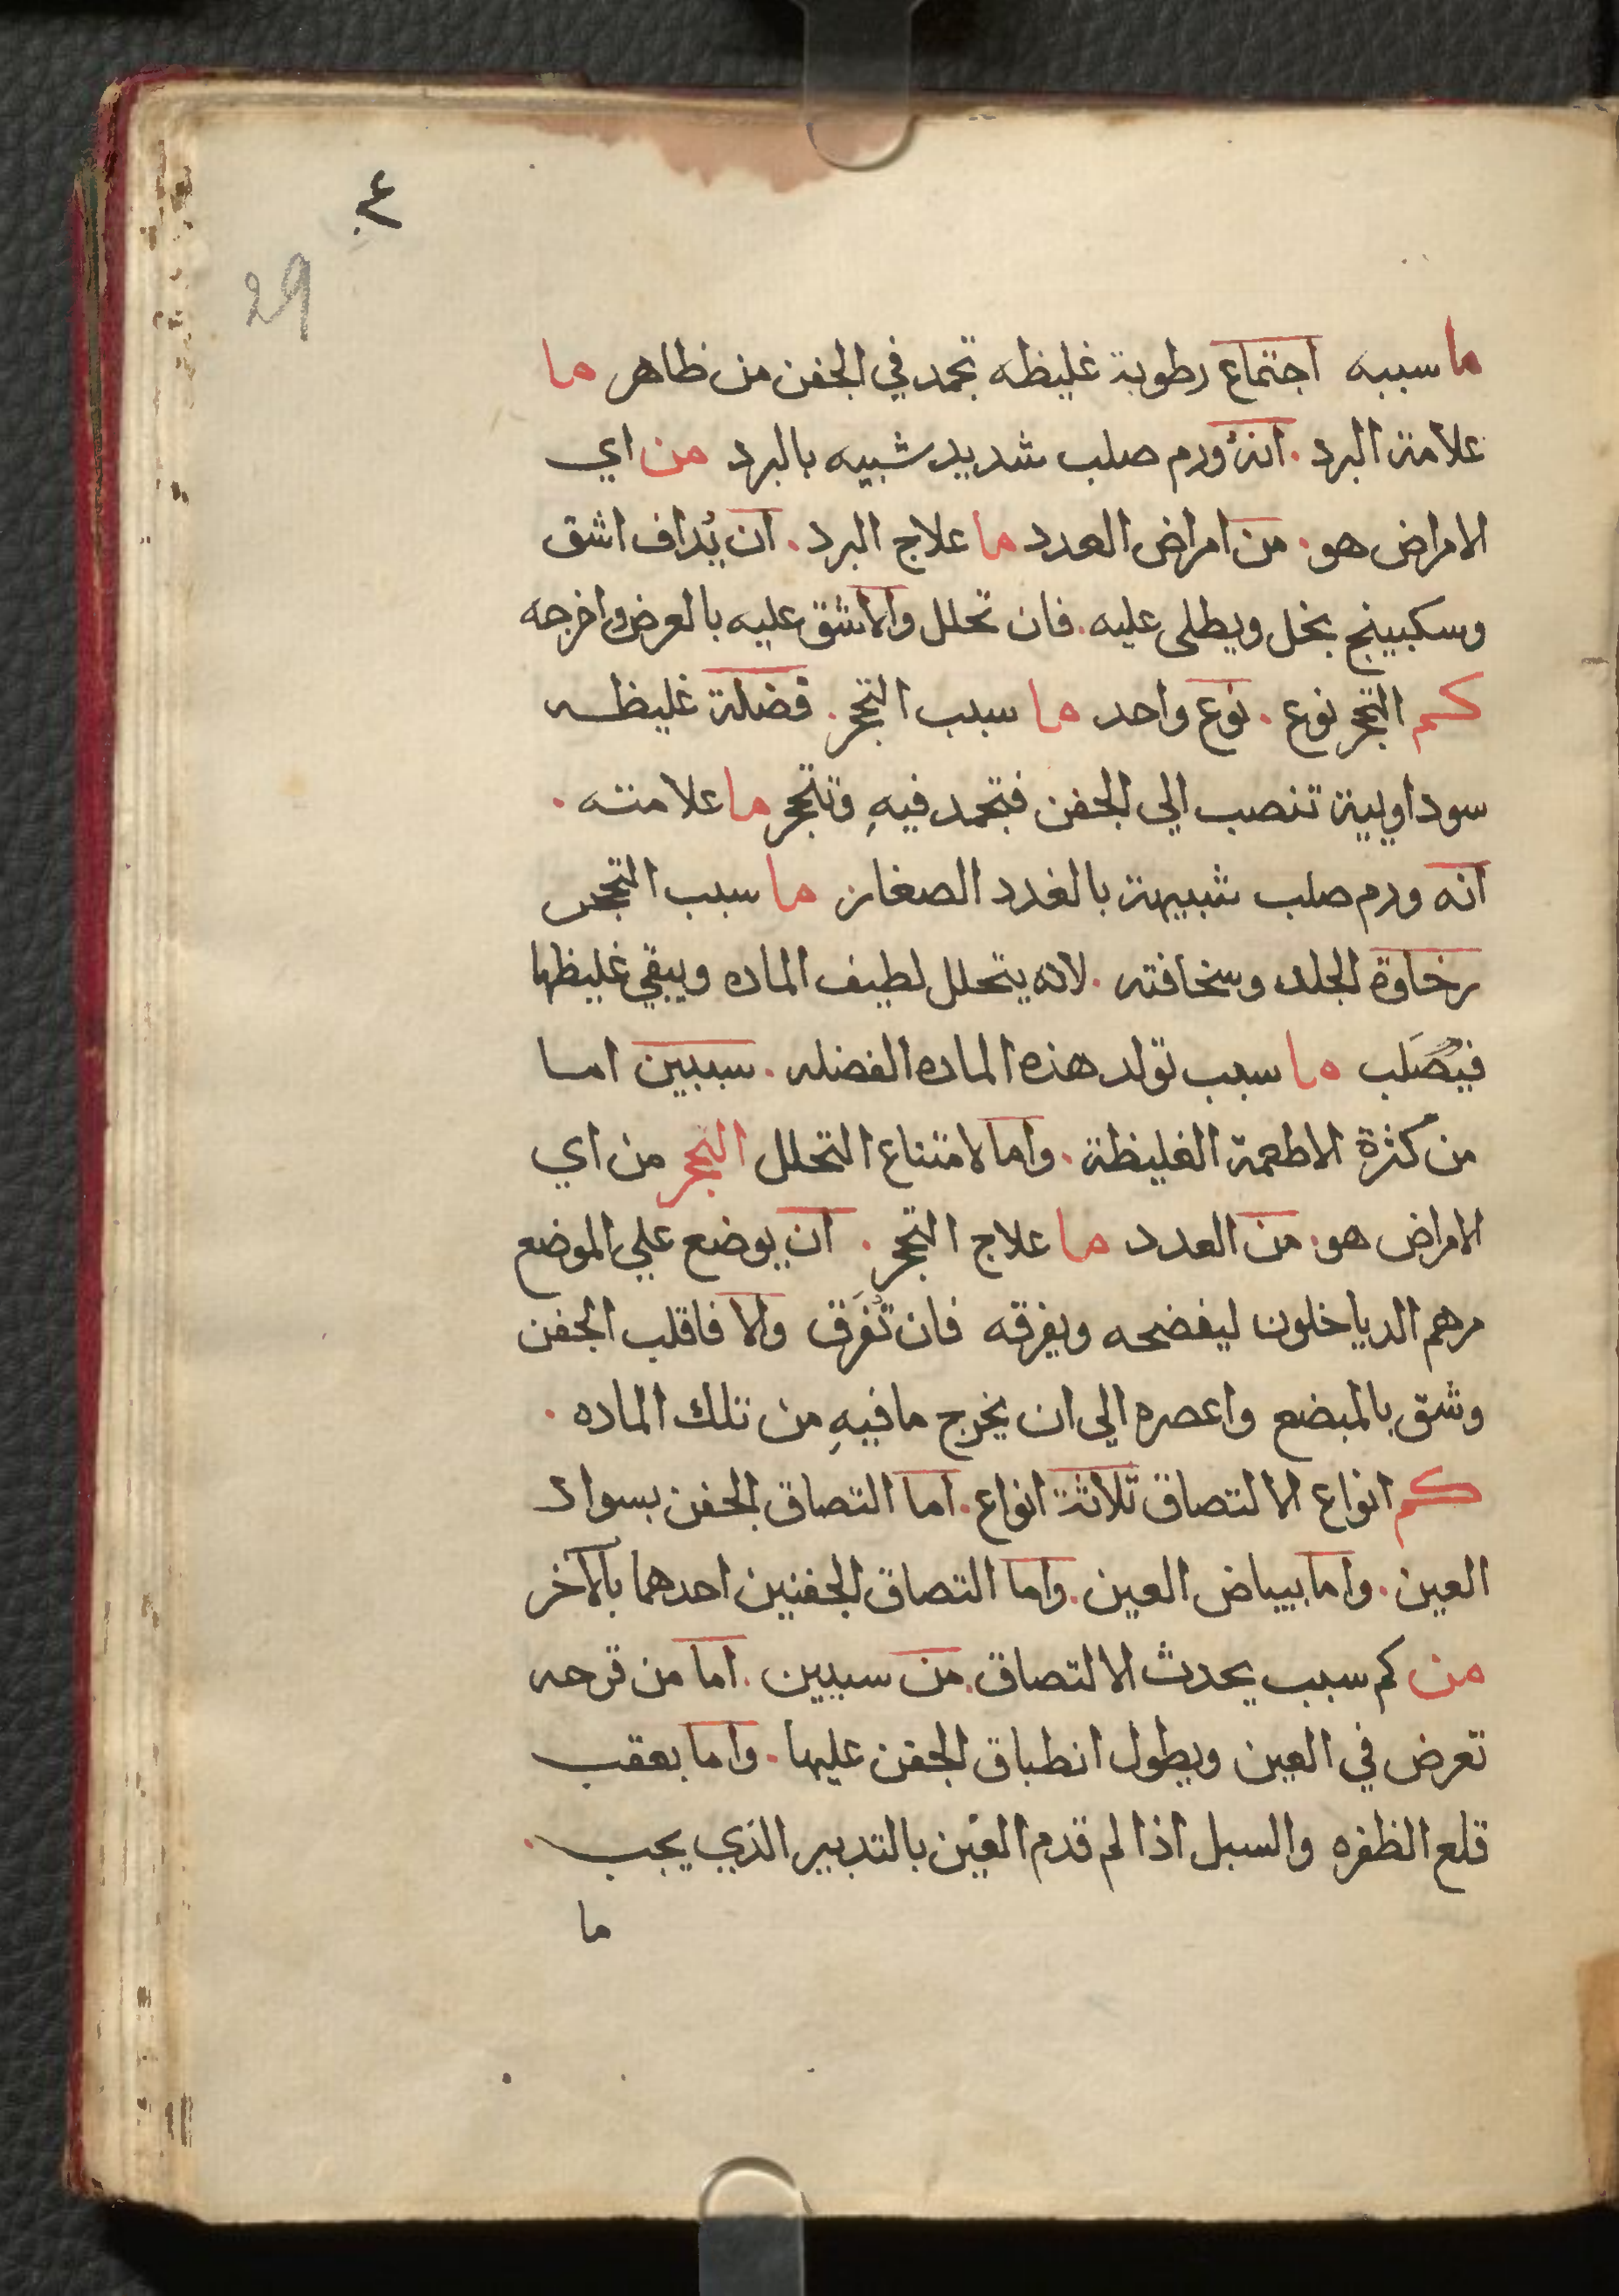 ٤٠
29
ما سببه اجتماع رطوبة غليظه تجمد في الجفن من ظاهر ما
علامة البرد . انه ورم صلب شديد شبيه بالبرد من اي
الامراض هو . من امراض العدد ما علاج البرد . ان يُداف اشق
وسكبينج بخل ويطلى عليه . فان تحلل والا شق عليه بالعرض واخرجه
كم التحجر نوع . نوع واحد ما سبب التحجر . فضلة غليظه
سوداوية تنصب الي الجفن فتجمد فيهِ وتتحجر ما علامته .
انه ورم صلب شبيهة بالغدد الصغار ما سبب التحجر
رخاوة الجلد وسخافته . لانه يتحلل لطيف الماده ويبقي غليظها
فيصَلب ما سبب تولد هذه الماده الفضله . سببين اما
من كثرة الاطعمة الغليظة . واما لامتناع التحلل التحجر من اي
الامراض هو . من العدد ما علاج التحجر . ان يوضع علي الموضع
مرهم الدياخلون ليفضحه ويفرقه فان تُفَرق والا فاقلب الجفن
وشق بالمبضع واعصره الي ان يخرج ما فيهِ من تلك الماده .
كم انواع الالتصاق ثلاثة انواع . اما التصاق الجفن بسواد
العين . واما ببياض العين . واما التصاق الجفنين احدهما بالآخر
من كم سبب يحدث الالتصاق . من سببين . اما من قرحه
تعرض في العين ويطول انطباق الجفن عليها . واما بعقب
قلع الظفره والسبل اذا لم قدم العين بالتدبير الذي يجب .
ما